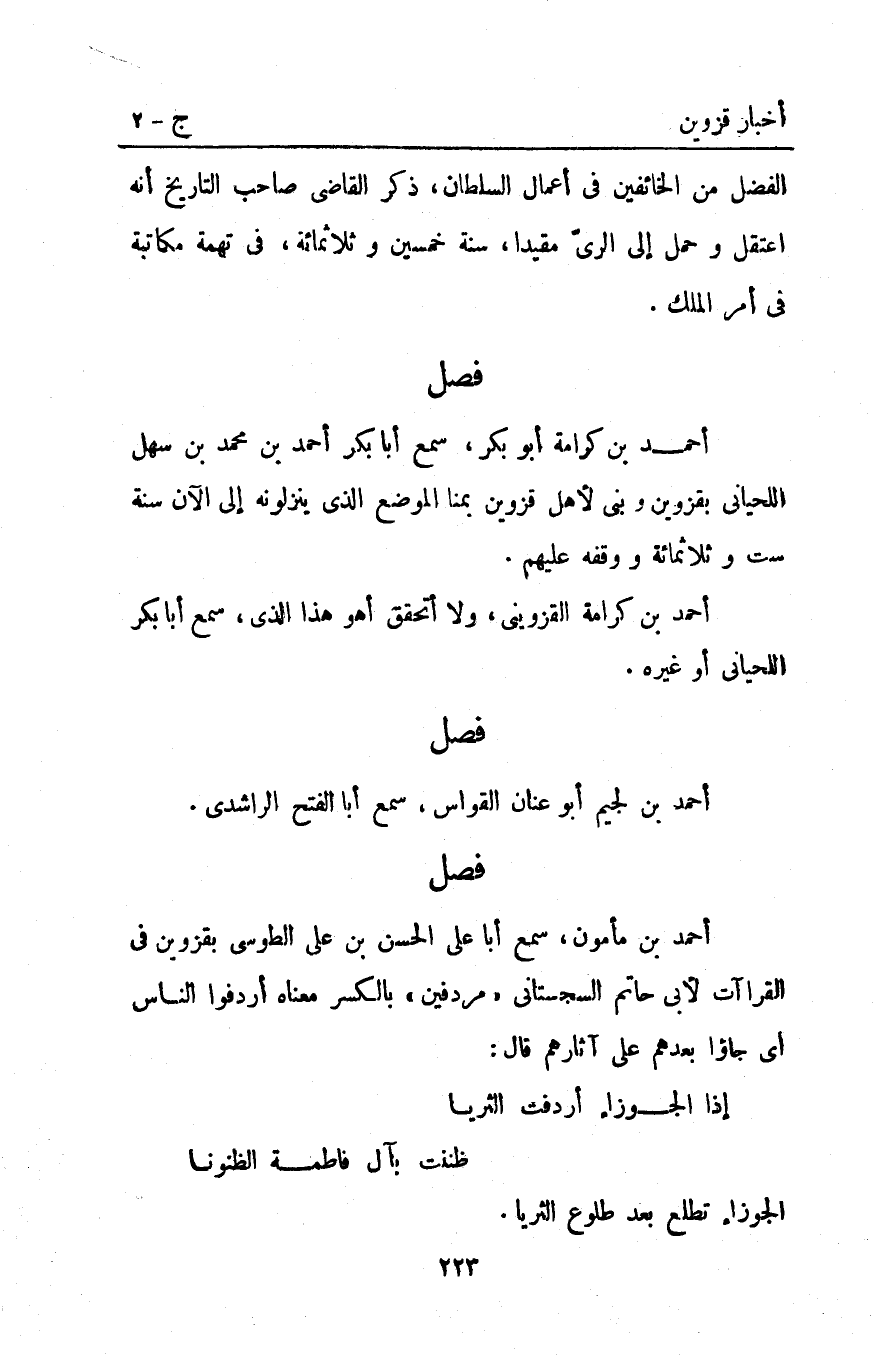 أخبار قزوين ج - ٢
الفضل من الخائفين فى أعمال السلطان، ذكر القاضى صاحب التاريخ أنه
اعتقل و حمل إلى الرىّ مقيدا، سنة خمسين و ثلاثمائة، فى تهمة مكاتبة
فى أمر الملك.
فصل
أحمـــد بن كرامة أبو بكر، سمع أبا بكر أحمد بن محمد بن سهل
اللحيانى بقزوين و بنى لأهل قزوين بمنا الموضع الذى ينزلونه إلى الآن سنة
ست و ثلاثمائة و وقفه عليهم.
أحمد بن كرامة القزوينى، ولا أتحقق أهو هذا الذى، سمع أبا بكر
اللحيانى أو غيره.
فصل
أحمد بن لجيم أبو عنان القواس، سمع أبا الفتح الراشدى.
فصل
أحمد بن مأمون، سمع أبا على الحسن بن على الطوسى بقزوين فى
القراآت لأبى حاتم السجستانى «مردفين» بالكسر معناه أردفوا النـاس
أى جاؤا بعدهم على آثارهم قال:
إذا الجـــوزاء أردفت الثريـا
ظننت بآل فاطمـــة الظنونـا
الجوزاء تطلع بعد طلوع الثريا.
٢٢٣